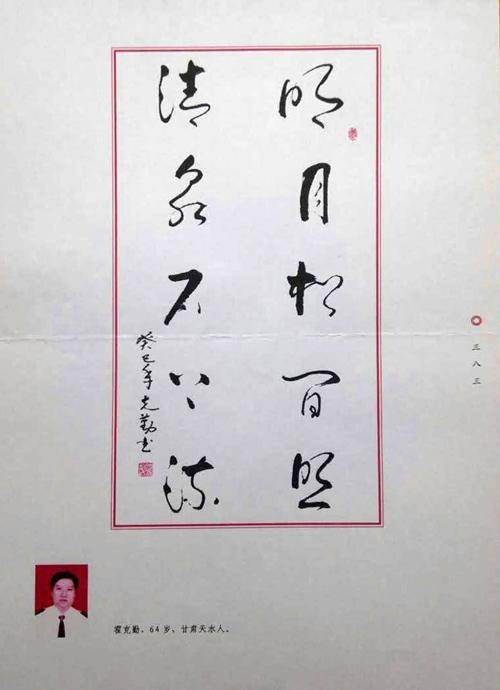 明月松间照
清泉石上流
癸巳年克勤书
三八三
霍克勤，64岁、甘肃天水人。